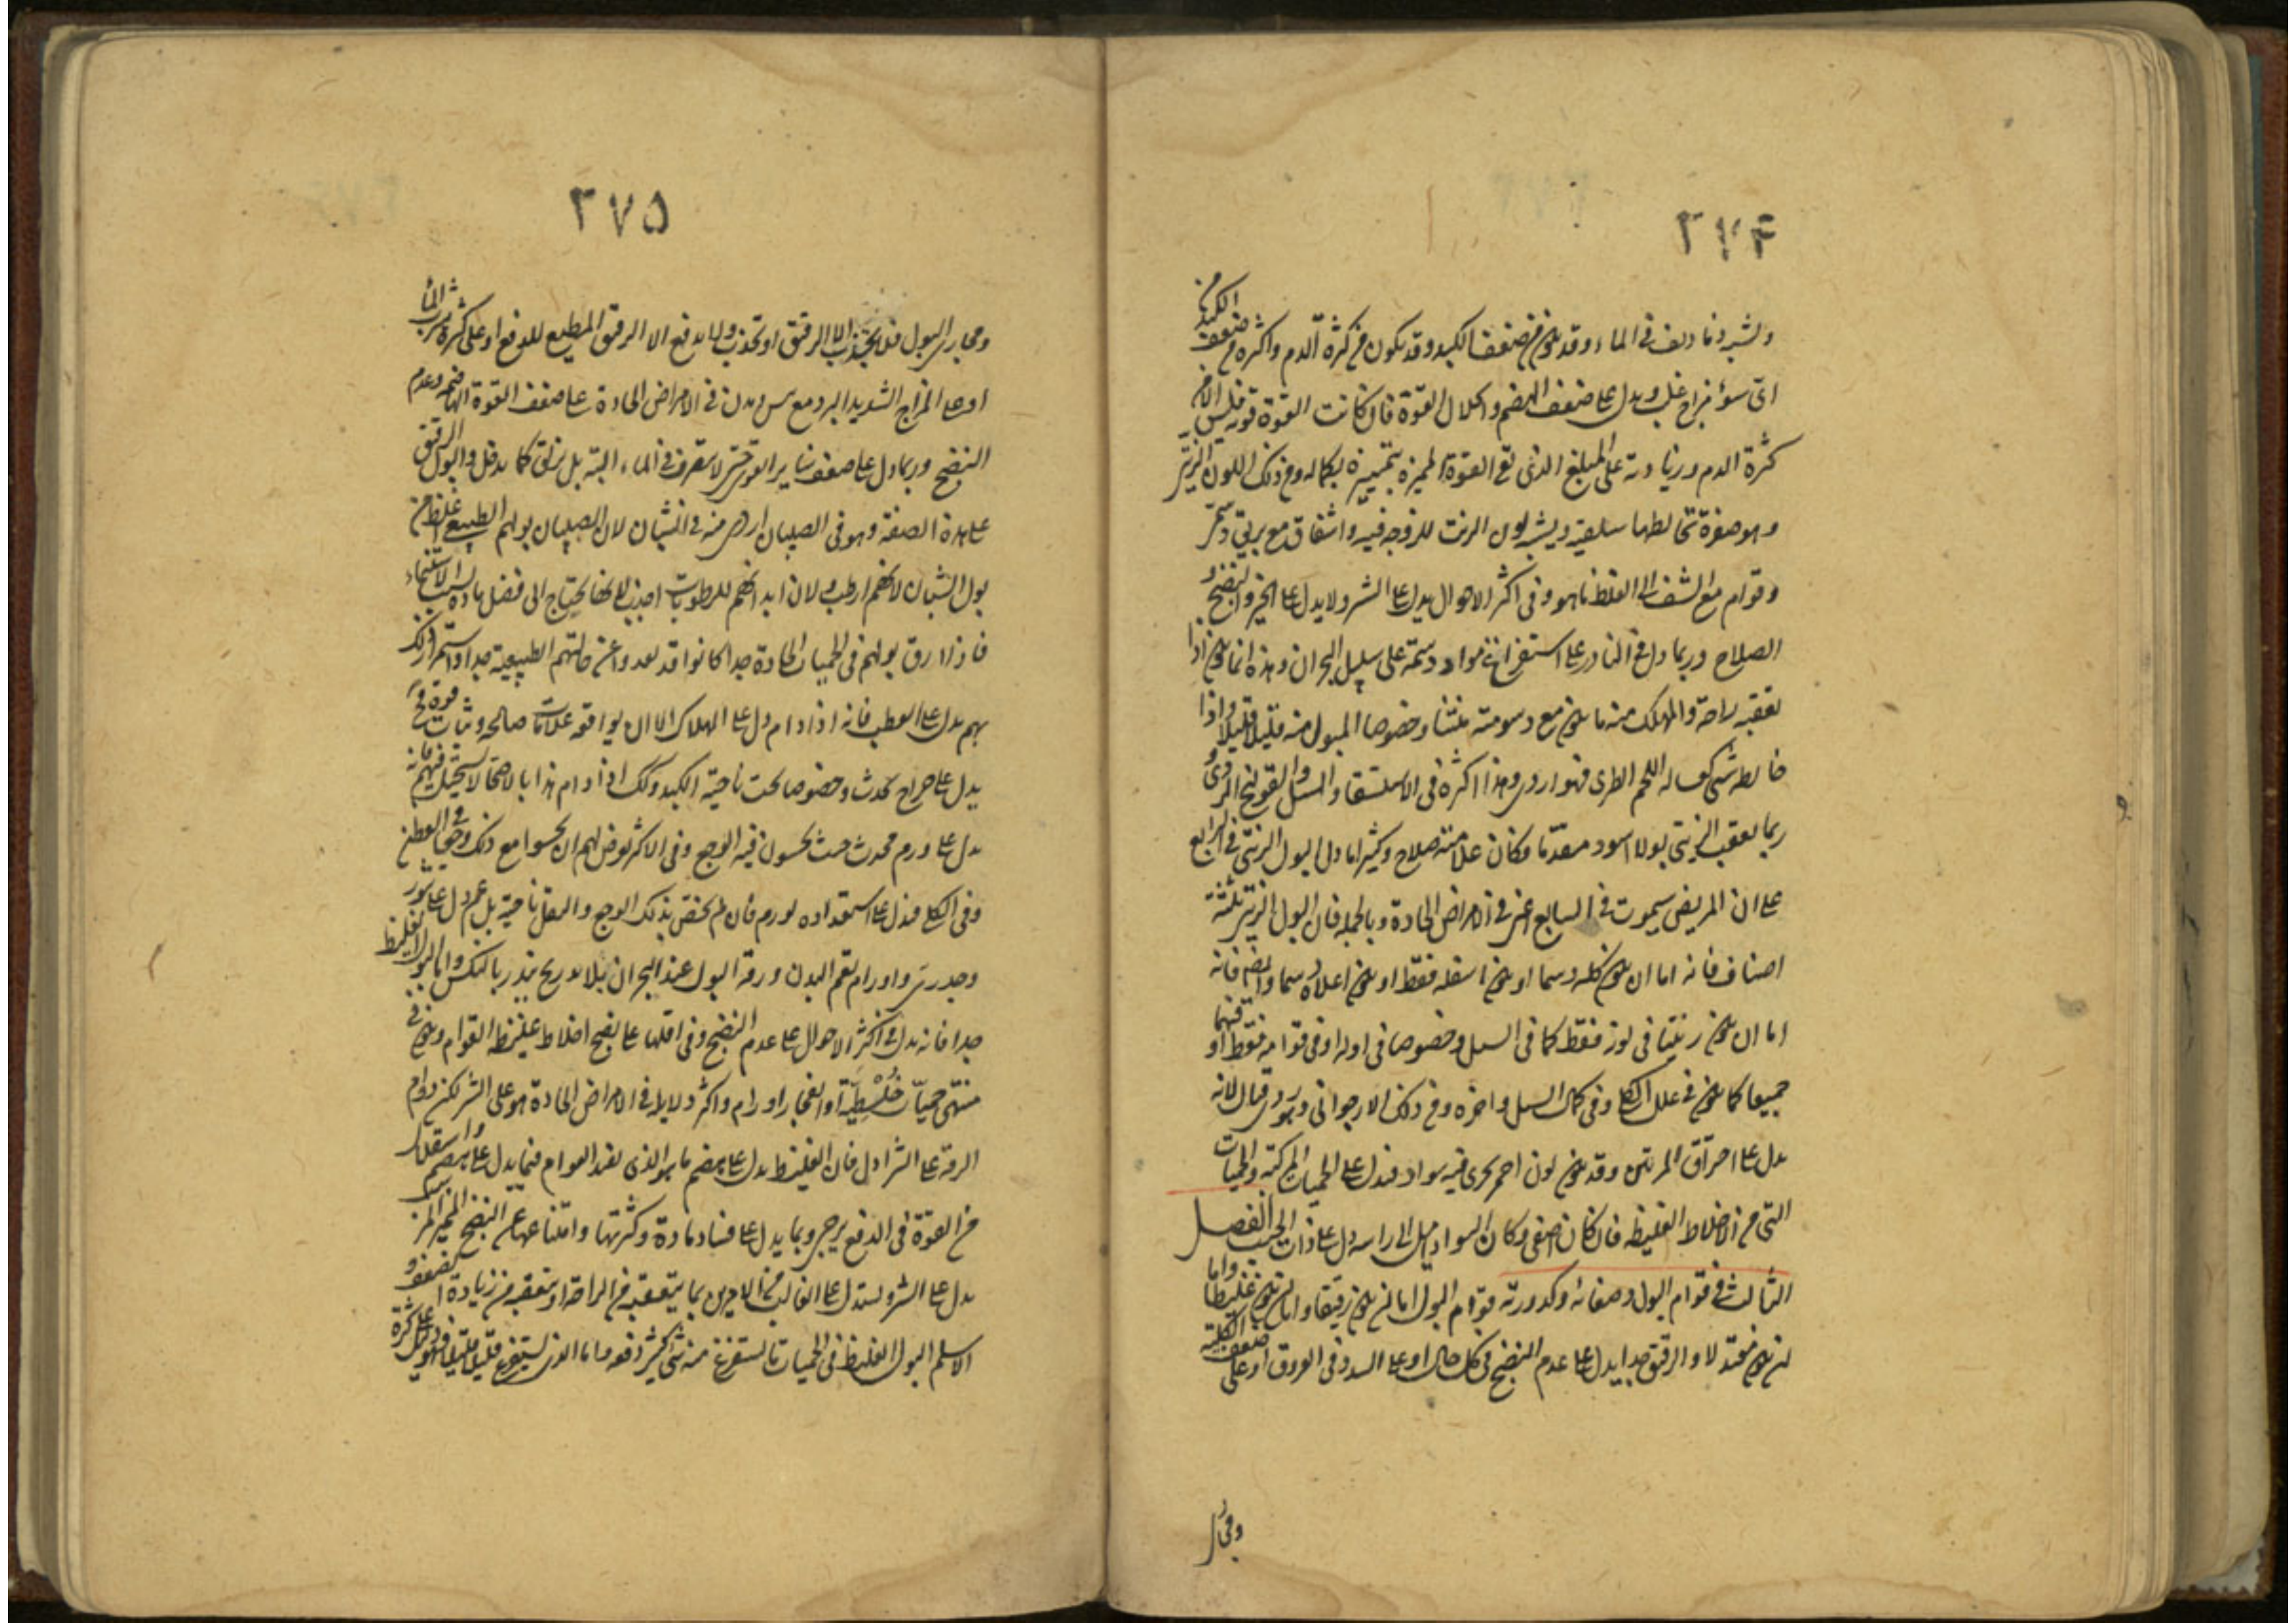 ٢٧۴
ويشبه دما ديف في الماء وقد يكون من ضعف الكبد وقد يكون من كثرة الدم واكثره من ضعف الكبد من
اى سوء مزاج غلب ويدل على ضعف الهضم وانحلال القوة فان كانت القوة قوية فليس الا من
كثرة الدم وزيادته على المبلغ الذى تفى القوة المميزة بتمييزه بكماله ومن ذلك اللون الزيتى
وهو صفرة تخالطها سلقية ويشبه لون الزيت للزوجة فيه واشفاف مع بريق دسمى
وقوام مع الشف الى الغلظ ما هو وفى اكثر الاحوال يدل على الشر ولا يدل على الخير والنضج و
الصلاح وربما دل فى النادر على استفراغ مواد دسمة على سبيل البحران وهذه انما يكون اذا
تعقبه راحة والمهلك منه ما يكون مع دسومته منتنا وخصوصا المبول منه قليلا قليلا واذا
خالطه شئ كغسالة اللحم الطرى فهو اردى وهذا اكثره فى الاستسقا والسل والقولنج الردى و
ربما يعقب الزيتى بولا اسود متقدما وكان علامته صلاح وكثيرا ما دل البول الزيتى فى الرابع
على ان المريض سيموت فى السابع اعنى فى الامراض الحادة وبالجملة فان البول الزيتى ثلثة
اصناف فانه اما ان يكون كله دسما او يكون اسفله فقط او يكون اعلاه دسما وايضا فانه
اما ان يكون زيتيا فى لونه فقط كما فى السل وخصوصا فى اوله او فى قوامه فقط او فيهما
جميعا كما يكون فى علل الكلى وفى كمال السل واخره ومن ذلك الارجوانى وهو ردى قتال لانه
يدل على احراق المرتين وقد يكون لون احمر يجرى فيه سواد فيدل على الحميات المركبة والحميات
التى من الاخلاط الغليظه فان كان اصفى وكان السواد اميل الى راسه دل على ذات الجنب الفصل
الثالث فى قوام البول وصفائه وكدورته قوام البول اما ان يكون رقيقا واما ان يكون غليظا واما
ان يكون معتدلا والرقيق جدا يدل على عدم النضج فى كل حال او على السدد فى العروق او على ضعف الكلية
ومجارى
٢٧۵
ومجارى البول فلا يجتذب الا الرقيق او تجذب ولا يدفع الا الرقيق المطيع للدفع او على كثرة شرب الماء
او على المزاج الشديد البرد مع يبس ويدل فى الامراض الحادة على ضعف القوة الهاضمة وعدم
النضج وربما دل على ضعف ساير القوى حتى لا يتصرف فى الماء البتة بل يزلق كما يدخل والبول الرقيق
على هذه الصفة وهو فى الصبيان اردى منه فى الشبان لان الصبيان بولهم الطبيعى اغلظ من
بول الشبان لانهم ارطب ولان ابدانهم للرطوبات اجذب لانها تحتاج الى فضل مادة بسبب الاستنماء
فاذا رق بولهم فى الحميات الحادة جدا كانوا قد بعدوا عن حالتهم الطبيعية جدا واستمرار ذلك
بهم يدل على العطب فانه اذا دام دل على الهلاك الا ان يوافقه علامات صالحة وثبات قوة فح
يدل على خراج يحدث وخصوصا تحت ناحية الكبد وكذلك اذا دام هذا بالاصحا لا يستحيل فيهم فانه
يدل على ورم يحدث حيث يحسون فيه الوجع وفى الاكثر يعرض لهم ان يحسوا مع ذلك وجعا فى القطن
وفى الكلى فيدل على استعداده لورم فان لم يخص بذلك الوجع والثقل ناحية بل عم دل على بثور
وجدرى واورام تعم البدن ورقة البول عند البحران بلا تدريج ينذر بالنكس واما البول الغليظ
جدا فانه يدل فى اكثر الاحوال على عدم النضج وفى اقلها على نضج اخلاط غليظة القوام ويكون فى
منتهى حميات خلطية او انفجار اورام واكثر دلايله فى الامراض الحادة هو على الشر لكن دوام
الرقة على الشر ادل فان الغليظ يدل على هضم ما هو الذى يفيد القوام فبما يدل على هضم واستقلال
من القوة فى الدفع يرجى وبما يدل على فساد مادة وكثرتها وامتناعها عن النضج المميز المرسب
يدل على الشر ويستدل على الغالب من الامرين بما يتعقبه من الراحة او يتعقبه من زيادة الضعف و
الاسلم البول الغليظ فى الحميات ما يستفرغ منه شئ كثير دفعه واما الذى يستفرغ قليلا قليلا فهو دليل على كثرة